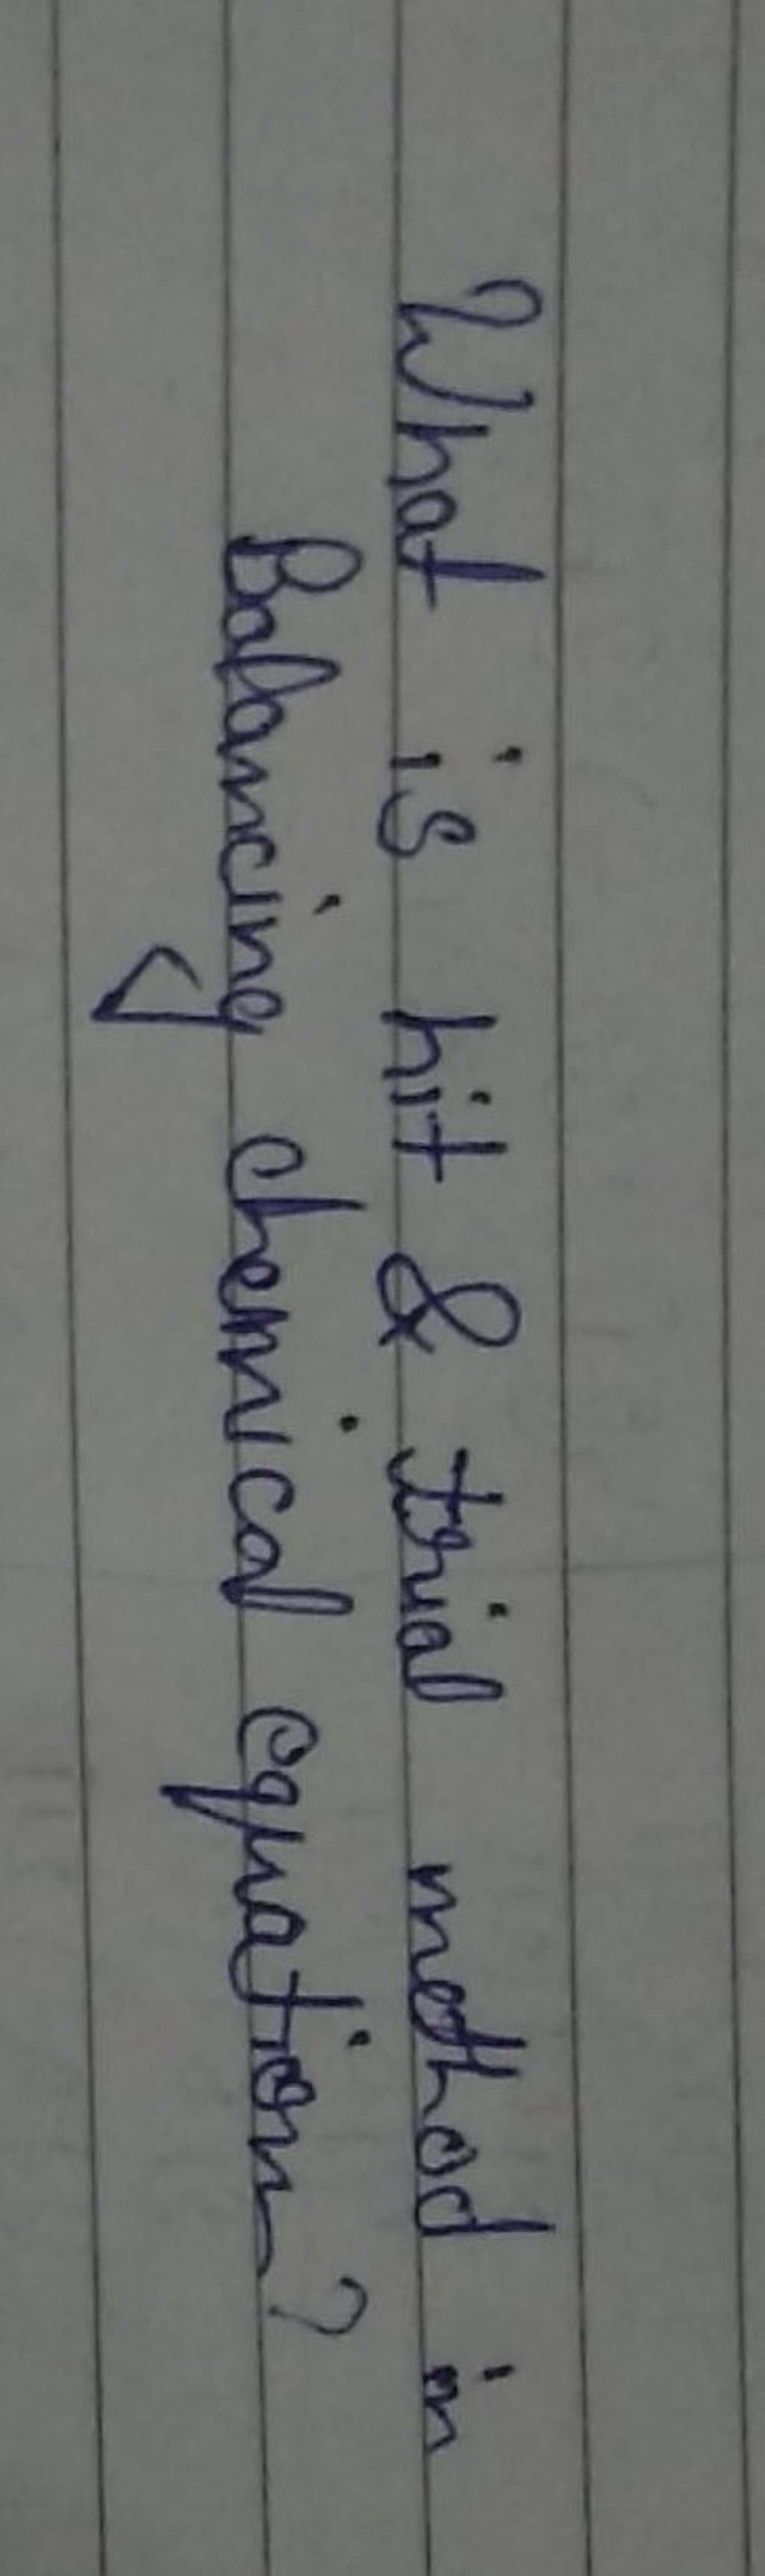 What is hit & trial method in
Balancing chemical equation?